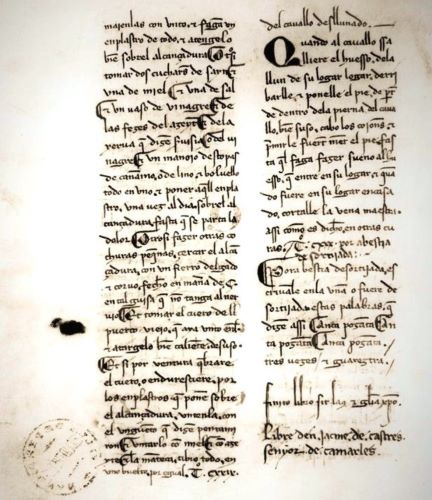 majenlas con vnto, & faga vn
enplastro de todo, & atengelo
bie sobrel alcançadura. Otrosi
tomar dos cuchars de
una de miel & una de sal
& un vaso de vinagre & de
las feges del azeyte & de la
yerua q dige & del vi
nagre & un manoio de stopas
de canamo, o de lino & boluello
todo en uno, & poner aqll enpla
stro, una veg al dia, sobrel al
cançadura, fasta q se parta la
dolor. Otrosi fager otras co
churas peqnas, gercar el alcã
çadura, con un fierro delgado
& coruo, fecho en mana de C.
en tal guisa q no tanga al ner
uio. & tomar el cuero del
puerto viejo, q aya vnto
& atargelo bie caliente desuso.
Et si por ventura qbrare
el cuero, o endurestiere, por
los enplastros q pone sobre
el alcançadura, vntenla, con
el vnguento q dige
& vntarlo co miel & co azey
te & la manteca, tibio todo, en
uno buelto, por egual. T. cxxix.
del cauallo desllunado.
Quando al cauallo ssa
lliere el huesso, dela
llun de su logar logar, derri
barlle, & ponelle el pie, de pt
de dentro dela pierna, del caua
llo, bie suso, cabo los coions, &
pmir le fuert met el pie, fas
ta q faga fager sueno al hu
esso, q entre en su logar, & qua
do fuere en su logar encasa
do, cortalle la vena maestra.
assi como es dicho, en otras cu
ras. T. cxxx. por abestia
de sortijada:
Pora bestia desortijada, es
criuale en la vnna o fuere de
sortijada estas palabras, q
digẽ assi Canta pogata Can
ta pogata Canta pogata.
tres veges & guarestra.
finito libro sit laus & gloria xpo.
Libre den Jacme, de castres
senyor de tamarles.